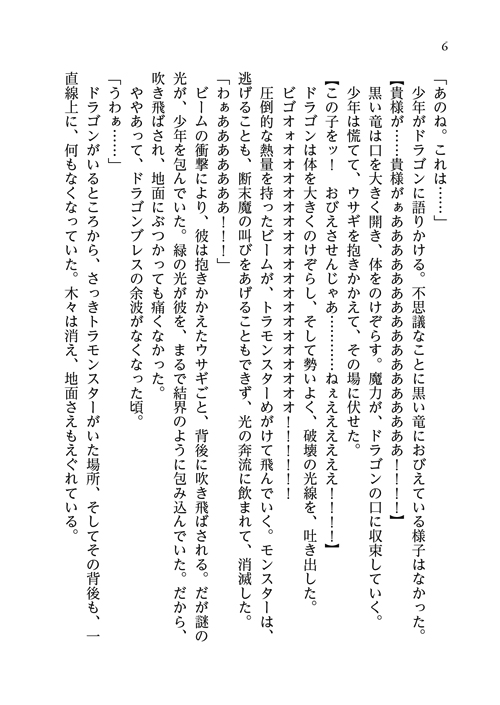 6
「あのね。これは……」
少年がドラゴンに語りかける。不思議なことに黒い竜におびえている様子はなかった。
【貴様が……貴様がぁあああああああああああああああああ！！！！】
黒い竜は口を大きく開き、体をのけぞらす。魔力が、ドラゴンの口に収束していく。
少年は慌てて、ウサギを抱きかかえて、その場に伏せた。
【この子をッ！　おびえさせんじゃあ…………ねぇえええええええ！！！！】
ドラゴンは体を大きくのけぞらし、そして勢いよく、破壊の光線を、吐き出した。
ビゴオォオオオオオオオオオオオオオオオオオオオ！！！！！！
圧倒的な熱量を持ったビームが、トラモンスターめがけて飛んでいく。モンスターは、
逃げることも、断末魔の叫びをあげることもできず、光の奔流に飲まれて、消滅した。
「わぁああああああああ！！！」
ビームの衝撃により、彼は抱きかかえたウサギごと、背後に吹き飛ばされる。だが謎の
光が、少年を包んでいた。緑の光が彼を、まるで結界のように包み込んでいた。だから、
吹き飛ばされ、地面にぶつかっても痛くなかった。
ややあって、ドラゴンブレスの余波がなくなった頃。
「うわぁ……」
ドラゴンがいるところから、さっきトラモンスターがいた場所、そしてその背後も、一
直線上に、何もなくなっていた。木々は消え、地面さえもえぐれている。